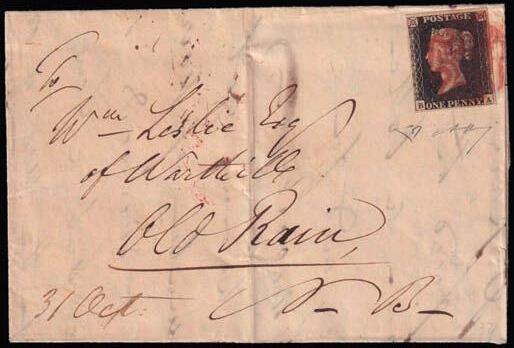 POSTAGE
B ONE PENNY A
To
Wm Leslie Esq
of Warthill
Old Rain,
31 Oct. N - B -